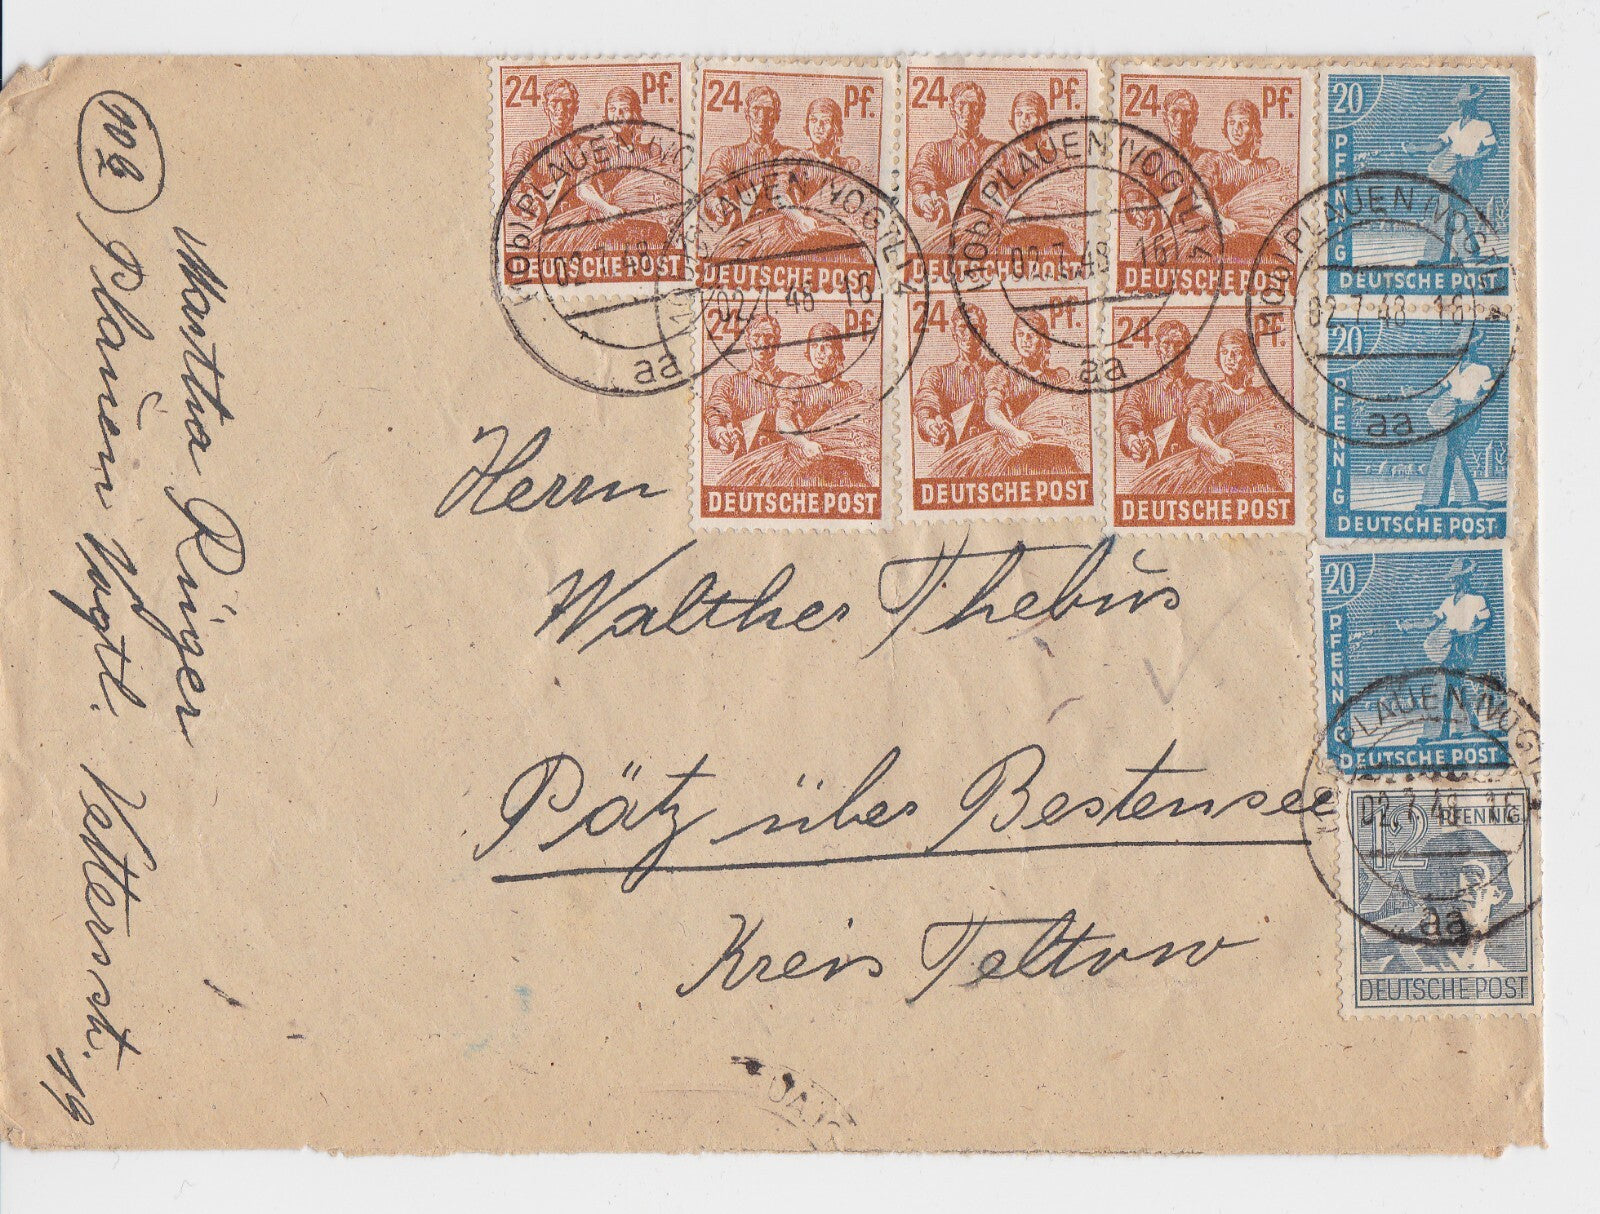 24 Pf.
DEUTSCHE POST
24 Pf.
DEUTSCHE POST
24 Pf.
DEUTSCHE POST
24 Pf.
DEUTSCHE POST
20
PFENNIG
DEUTSCHE POST
24 Pf.
DEUTSCHE POST
24 Pf.
DEUTSCHE POST
24 Pf.
DEUTSCHE POST
20
PFENNIG
DEUTSCHE POST
20
PFENNIG
DEUTSCHE POST
12 PFENNIG
DEUTSCHE POST
(10b) PLAUEN (VOGTL) 4
02.7.48
aa
(10b) PLAUEN (VOGTL) 4
02.7.48 16
(10b) PLAUEN (VOGTL) 4
02.7.48 16
aa
(10b) PLAUEN (VOGTL) 4
02.7.48 16
aa
PLAUEN (VOGTL)
02.7.48 16
aa
Herrn
Walther Thebüs
Pätz über Bestensee
Kreis Teltow
Martha Rüger
10b Plauen Vogtl.
19